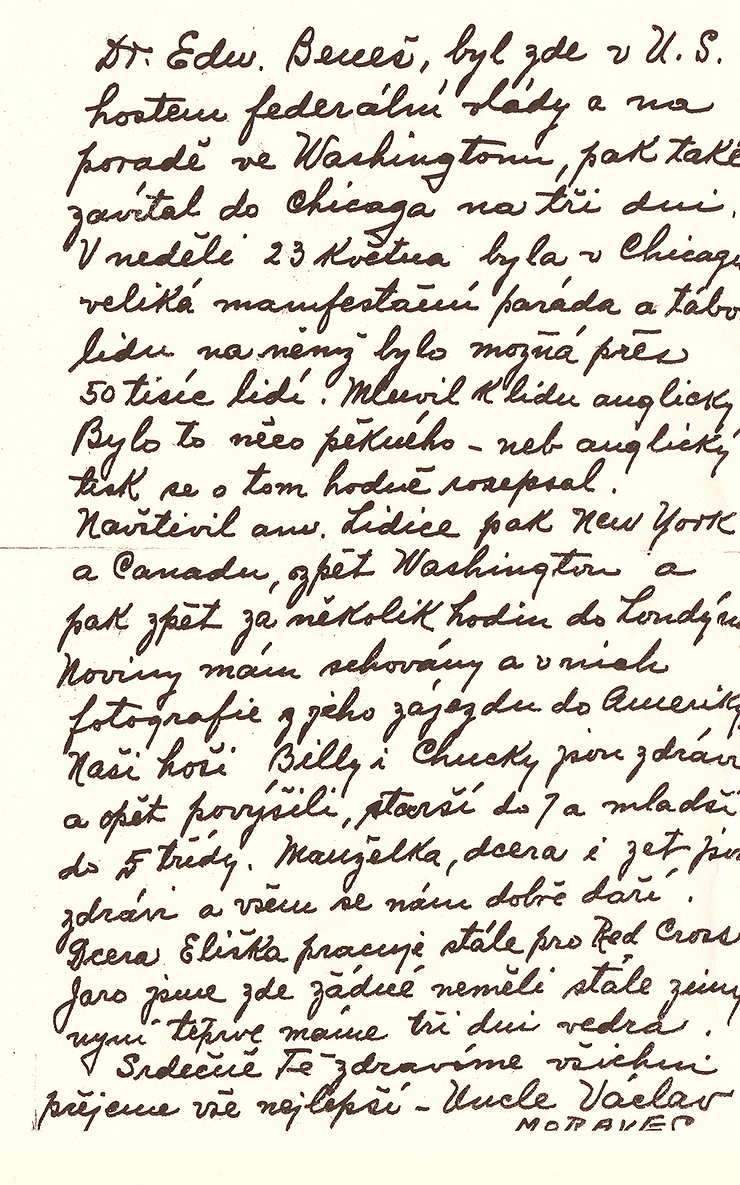 Dr. Edw. Beneš, byl zde v U. S.
hostem federální vlády a na
poradě ve Washingtonu, pak také
zavítal do Chicaga na tři dni.
V neděli 23 května byla v Chicagu
veliká manifestační paráda a tábo
lidu na němž bylo možná přes
50 tisíc lidí. Mluvil k lidu anglicky
Bylo to něco pěkného – neb anglický
tisk se o tom hodně rozepsal.
Navštívil am. Lidice pak New York
a Canadu, zpět Washington a
pak zpět za několik hodin do Londýn
Noviny mám schovány a v nich
fotografie z jeho zájezdu do Ameriky
Naši hoši Billy i Chucky jsou zdrávi
a opět povýšili, starší do 7 a mladší
do 5 třídy. Manželka, dcera i zeť jso
zdrávi a všem se nám dobře daří.
Dcera Eliška pracuje stále pro Red Cross
Jaro jsme zde žádné neměli stále zimy
nyní teprve máme tři dni vedra.
Srdečně Tě zdravíme všichni
přejeme vše nejlepší – Uncle Václav
MORAVEC